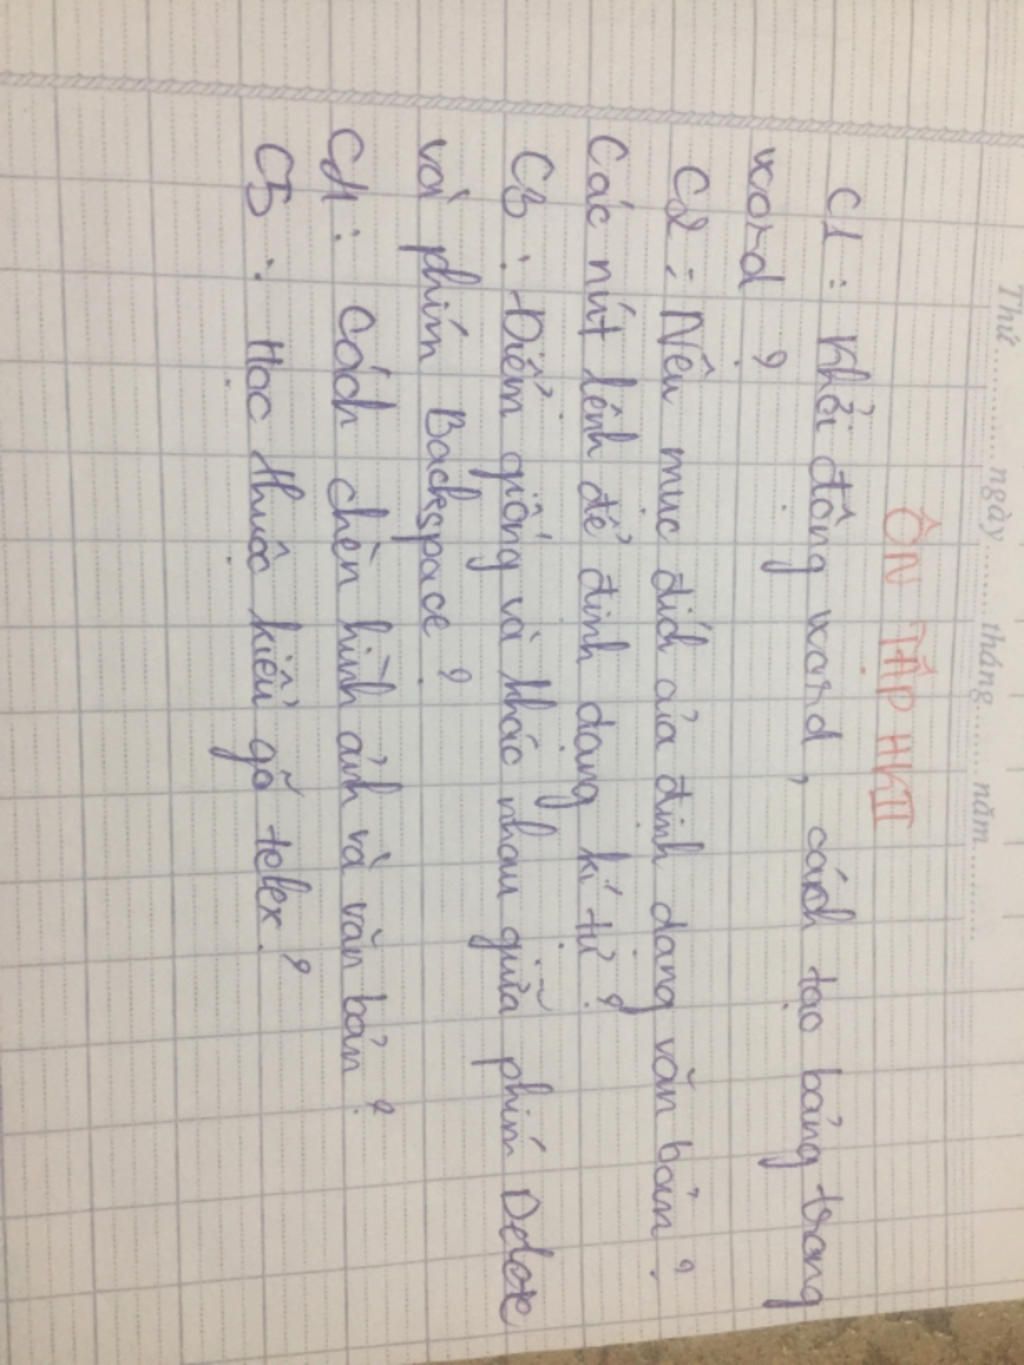 Thứ.........ngày.........tháng.........năm.........
ÔN TẬP HKII
C1 : Khởi động word, cách tạo bảng trong
word ?
C2 : Nêu mục đích của định dạng văn bản ?
Các nút lệnh để định dạng kí tự ?
C3 : Điểm giống và khác nhau giữa phím Delete
và phím Backspace ?
C4 : Cách chèn hình ảnh và văn bản ?
C5 : Học thuộc kiểu gõ telex. ?